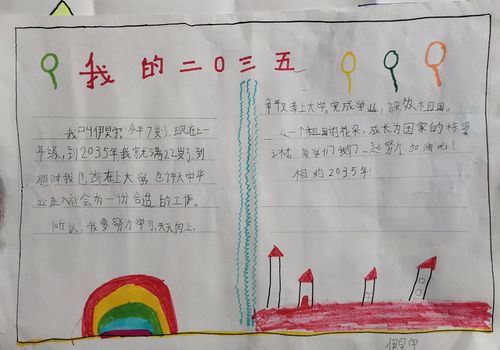 我的二0三五
我叫伊昊宇，今年7岁了，现在上一
年级，到2035年我就满22岁了，到
那时我已或在上大学，也许大学毕
业走入社会有一份合适的工作。
所以，我要努力学习，天天向上，
争取考上大学，完成学业，报效祖国。
从一个祖国的花朵，成长为国家的栋梁
之材，同学们我们一起努力，加油吧！
相约2035年！